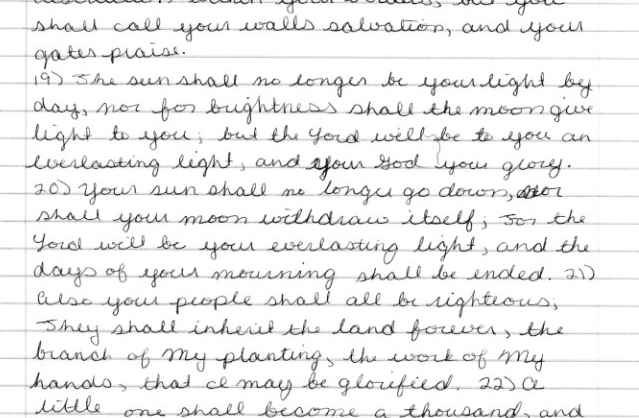 shall call your walls salvation, and your
gates praise.
19) The sun shall no longer be your light by
day, nor for brightness shall the moon give
light to you; but the Lord will be to you an
everlasting light, and your God your glory.
20) Your sun shall no longer go down, nor
shall your moon withdraw itself; For the
Lord will be your everlasting light, and the
days of your mourning shall be ended. 21)
Also your people shall all be righteous;
They shall inherit the land forever, the
branch of My planting, the work of My
hands, that I may be glorified. 22) A
little one shall become a thousand, and